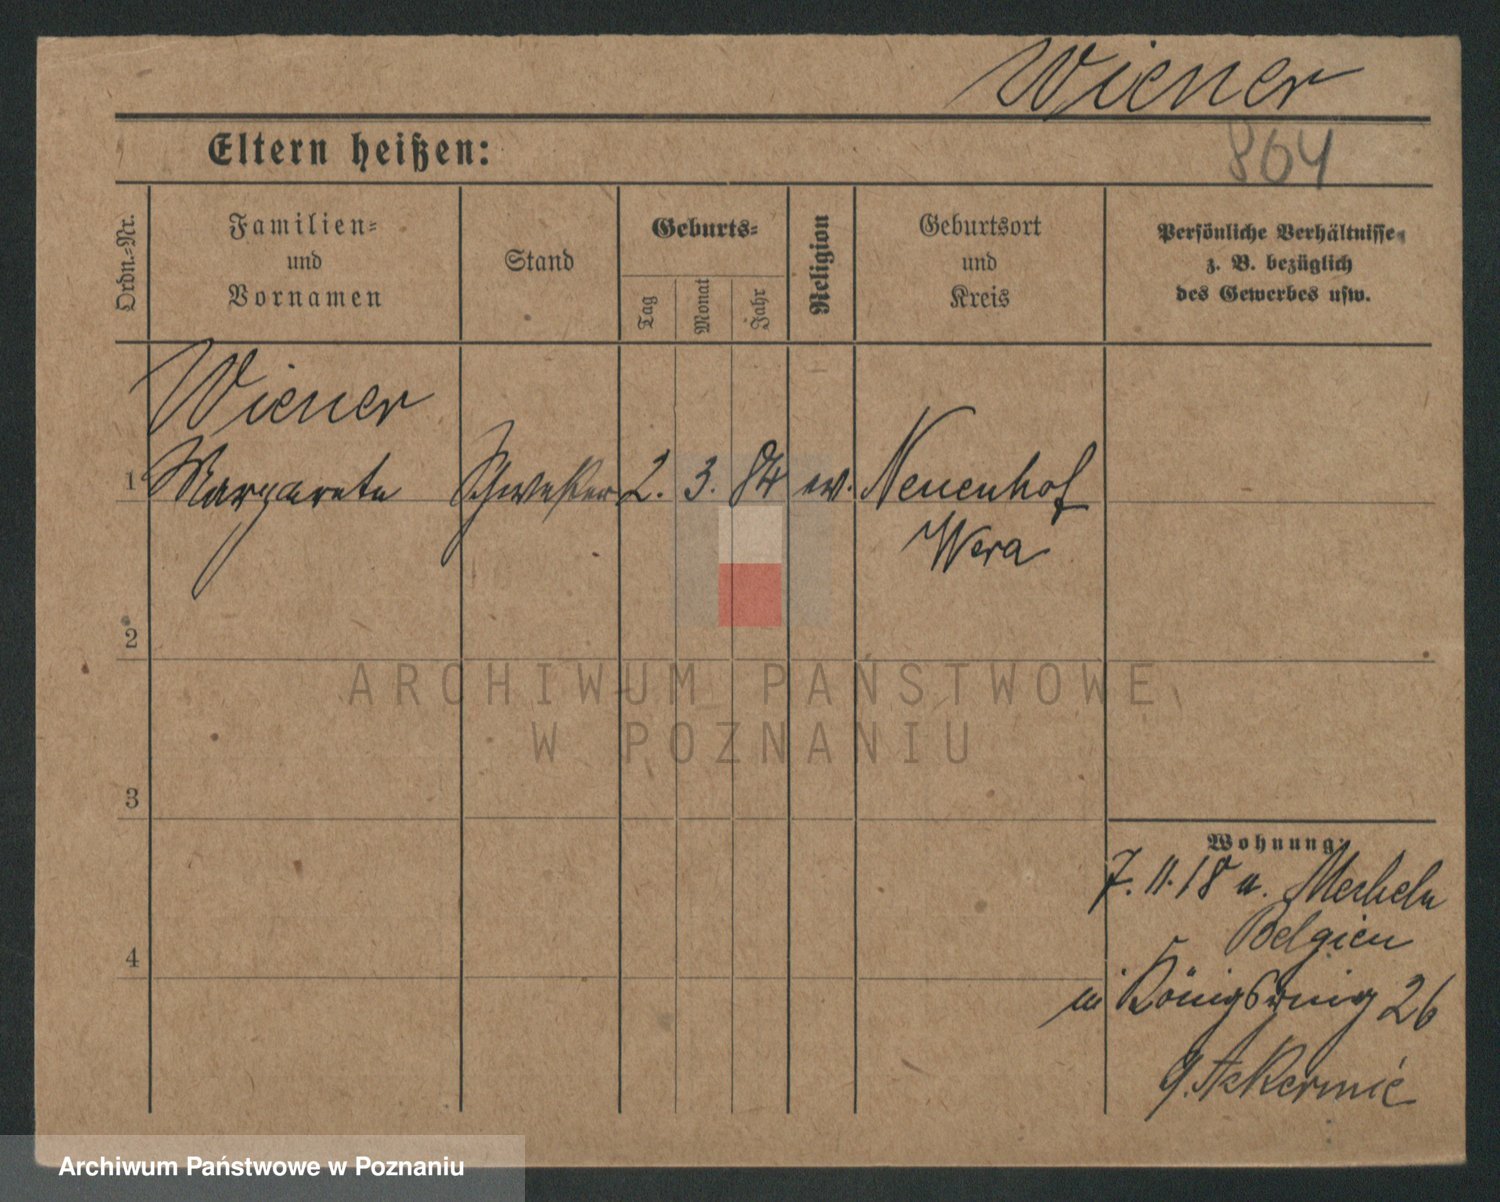 Wiener
864
Eltern heißen:
Ordn.-Nr.
Familien-
und
Vornamen
Stand
Geburts-
Tag
Monat
Jahr
Religion
Geburtsort
und
Kreis
Persönliche Verhältnisse
z. B. bezüglich
des Gewerbes usw.
Wiener
1 Margarete Schwester 2. 3. 84 ev. Neuenhof
Wera
2
3
4
Wohnung:
7. 11. 18 a. Mecheln
Belgien
in Königsring 26
ARCHIWUM PAŃSTWOWE
W POZNANIU
Archiwum Państwowe w Poznaniu